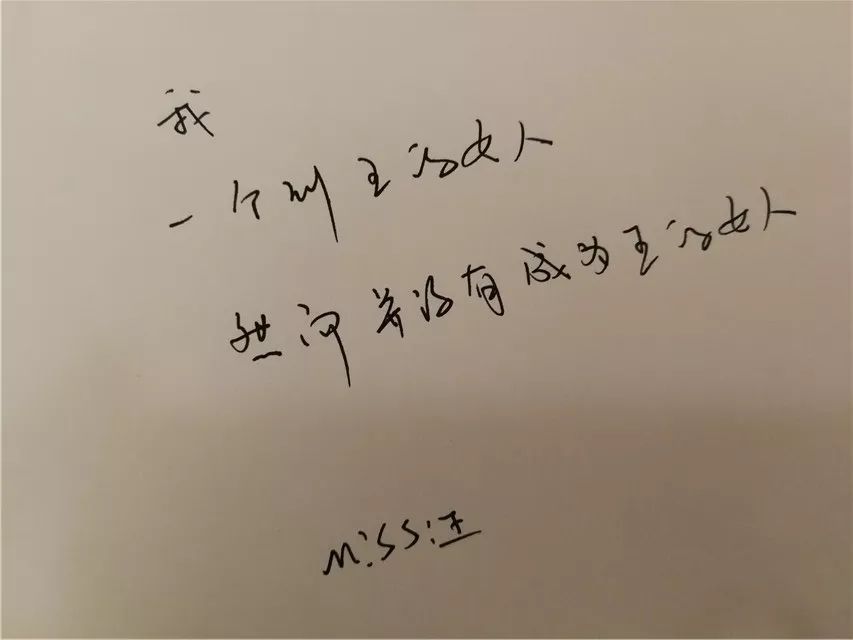 我
一个叫王的女人
并没有成为王的女人
Miss汪